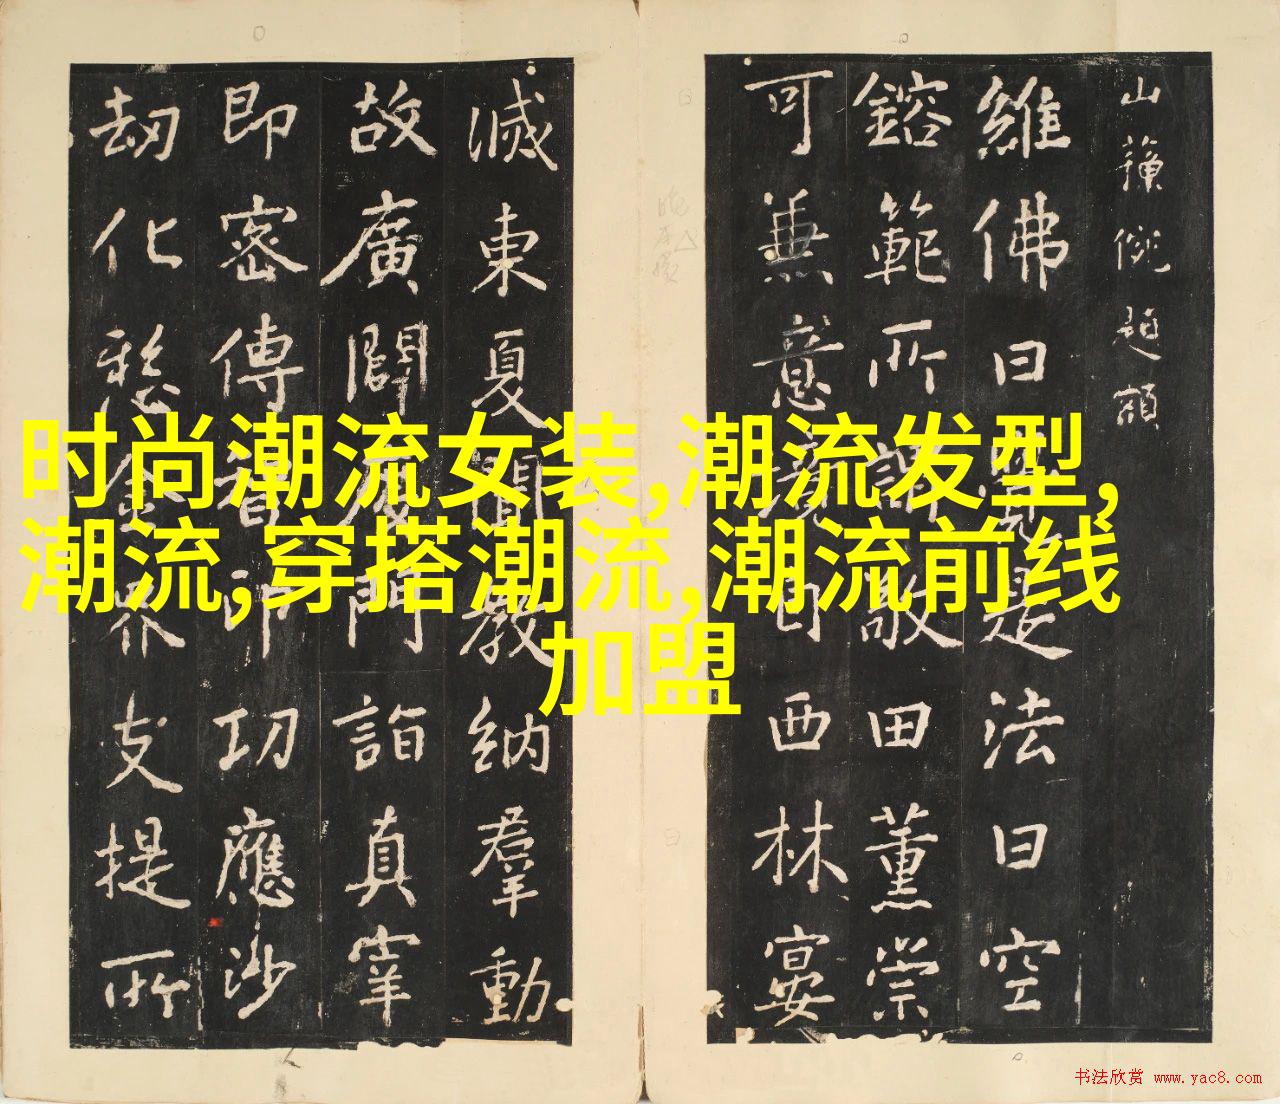 时尚潮流女装,潮流发型,
潮流,穿搭潮流,潮流前线
加盟
山 額
維佛曰 是法曰空
鎔範所 敬田薰崇
可兼意境 西林宴
滅東夏聞教納羣動
故廣闢 門詣真宰
即密傳智印功應沙
劫化 金界支提所
书法欣赏 www.yac8.com